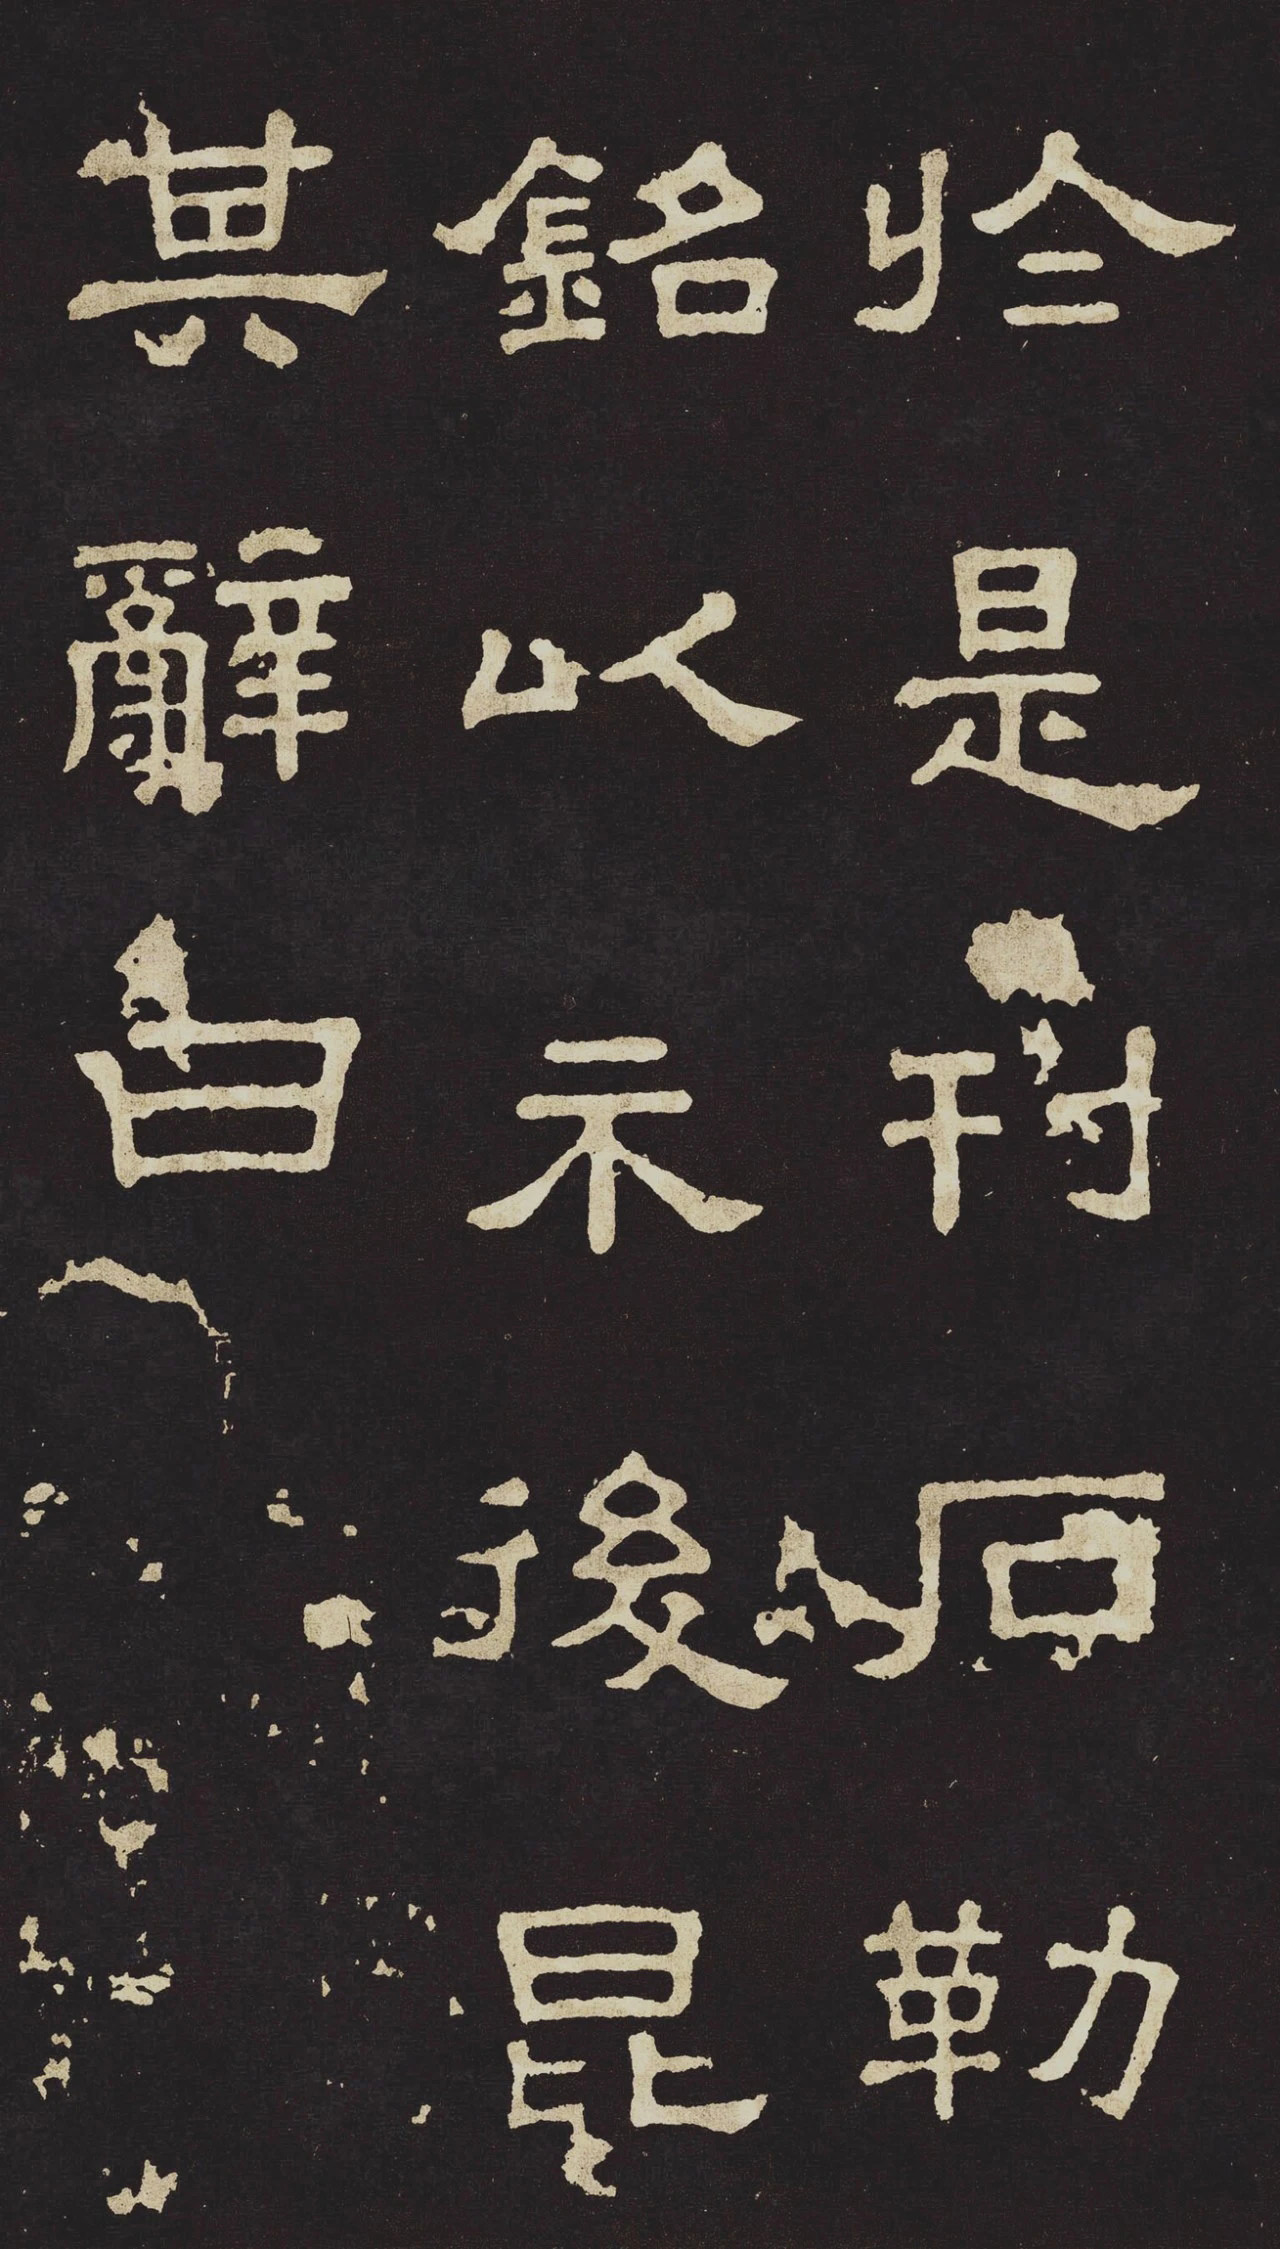 於是刊石勒
銘以示後昆
其辭曰